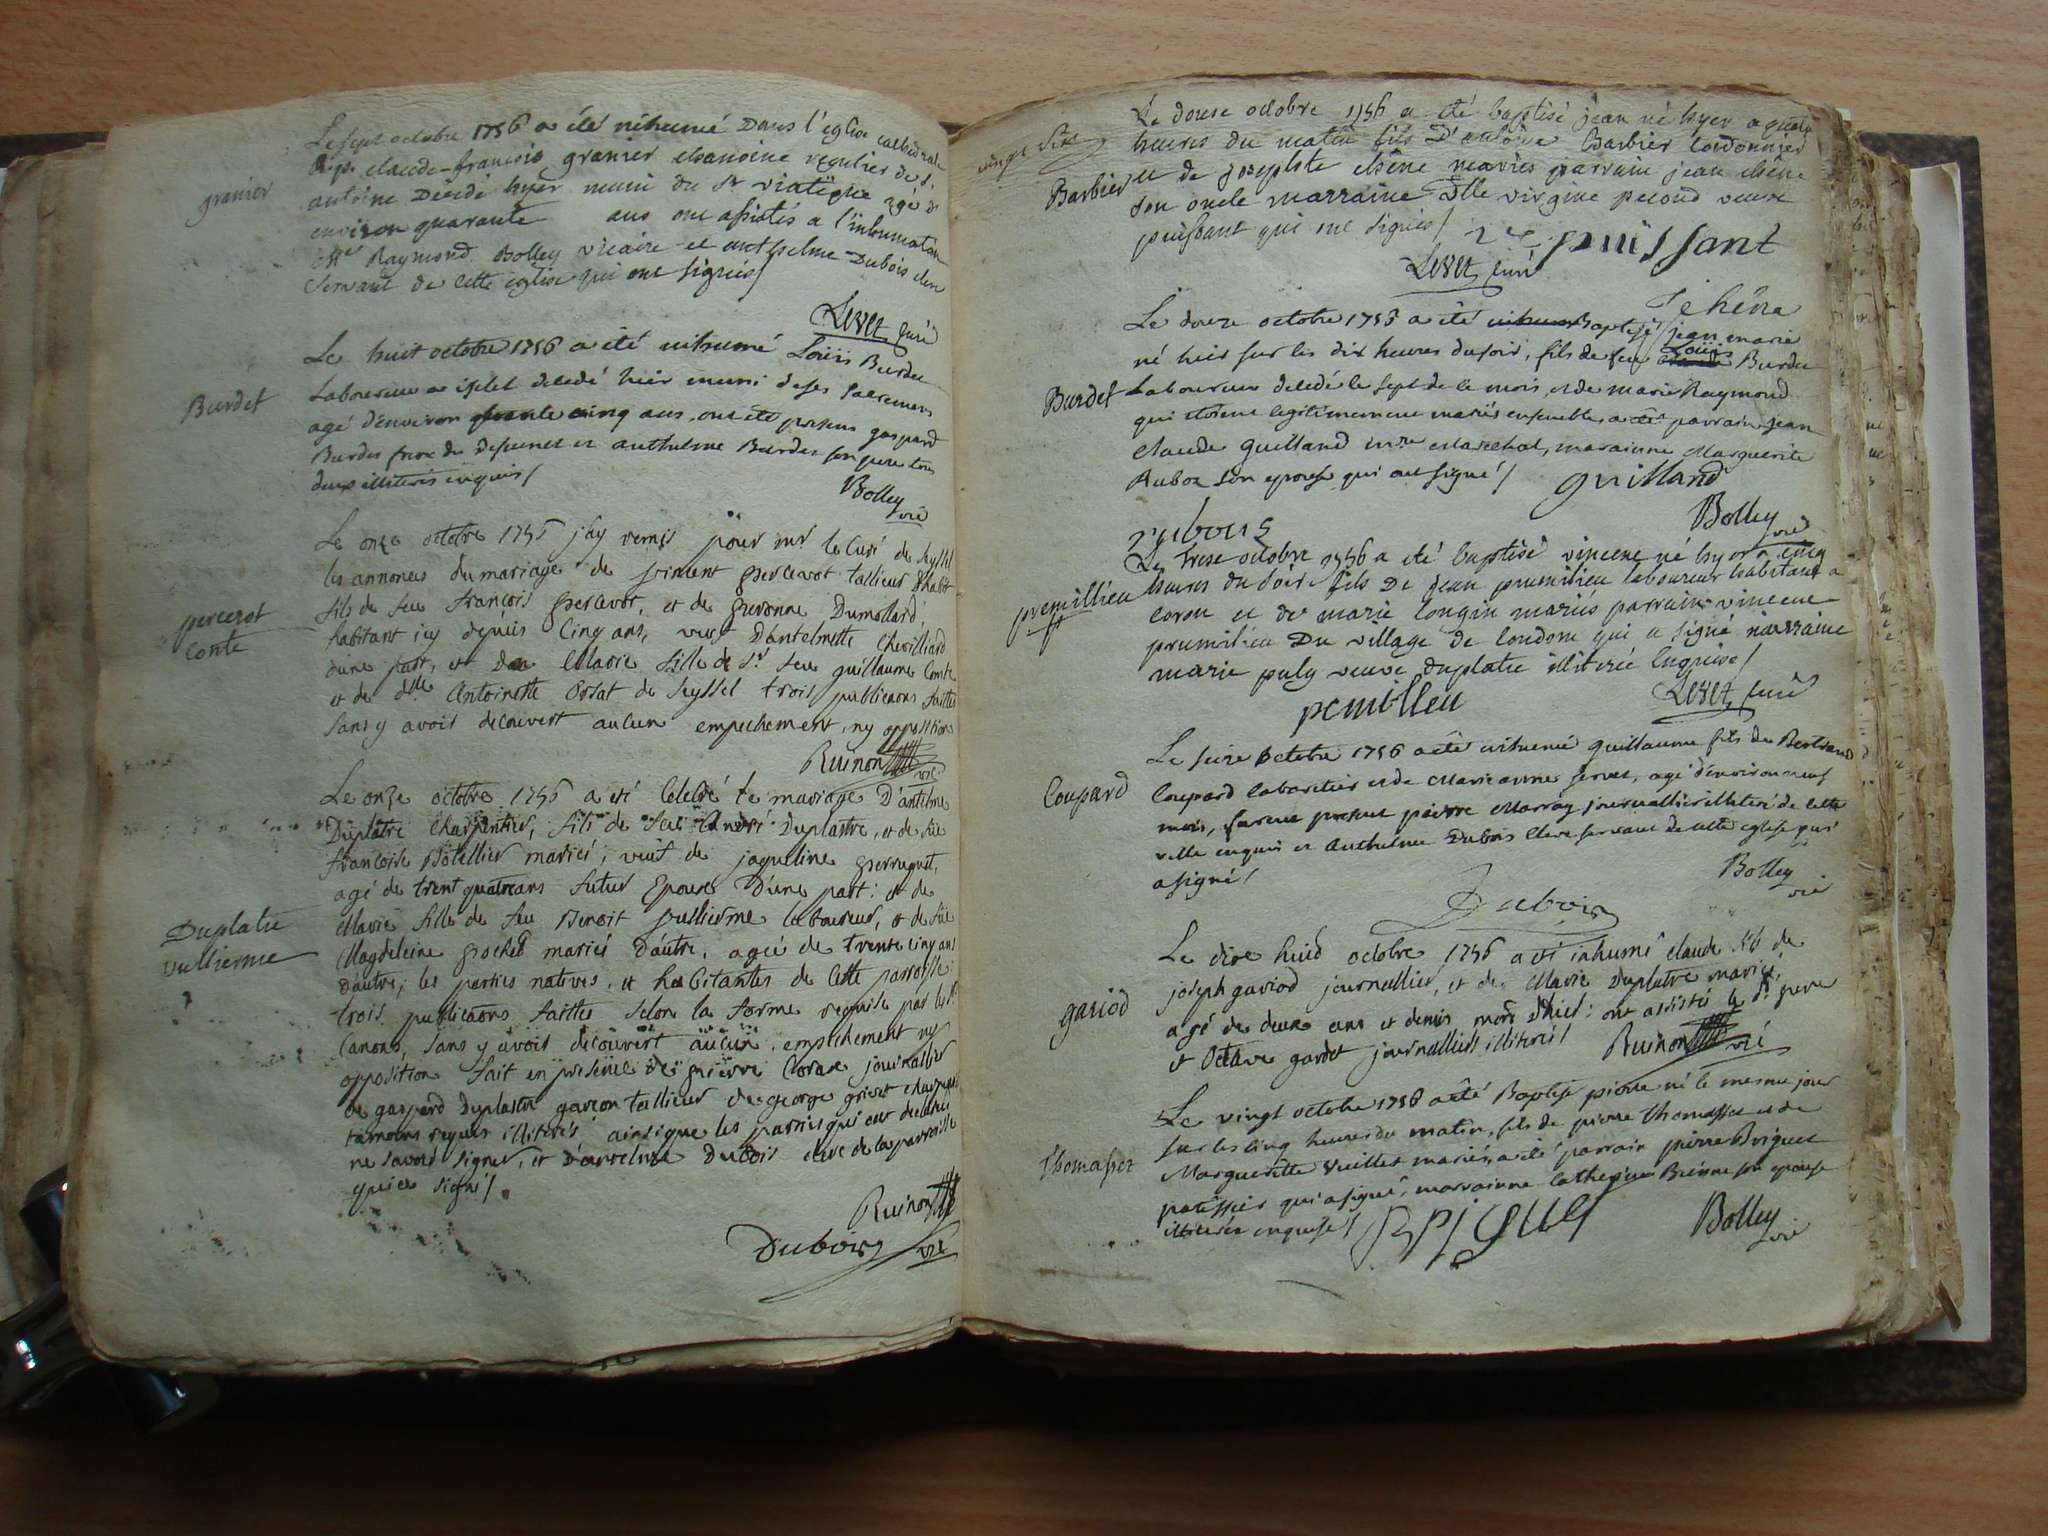 Le sept octobre 1756 a été inhumé Dans l'eglise cathedrale
R. p. claude-francois granier chanoine regulier de St
granier
antoine Décédé hyer muni du St viatique agé d'
environ quarante ans ont assistés a l'inhumation
Raymond Bolley vicaire et anthelme Dubois clerc
servant de cette eglise qui ont signés /
Levet curé
Le huit octobre 1756 a été inhumé Loüis Burdet
Burdet
Laboureur a decedé hier muni de ses sacremens
agé d'environ cinq ans, ont été presens gaspard
Burdet frere du defunct et anthelme Burdet son pere tous
deux illiterés enquis /
Bolley vic
Le onze octobre 1756 j'ay remis pour mr le curé de seyssel
les annonces du mariage de vincent percevot tallieur d'habit
percevot
conte
fils de feu francois percevot, et de pernonne Dumollard,
habitant icy depuis cinq ans, veuf d'antelmette Chevilliard
d'une part, et de Marie fille de Sr feu guillaume Conte
et de dlle Antoinette Orsat de seyssel trois publicaons faittes
sans y avoir decouvert aucun empechement, ny opposition
Ruinon vic
Le onze octobre 1756 a eté celebré le mariage D'antelme
Duplatre charpentier, fils de feu André Duplastre, et de feüe
francoise Botellier mariés, veuf de jaqueline perruquet,
agé de trent quatre ans futur Epoux d'une part: et de
Duplatre
vullierme
Marie fille de feu Benoit vullierme laboureur, et de feüe
Magdeleine pochet mariés d'autre, agée de trente cinq ans
d'autre; les parties natives, et habitantes de cette parroisse:
trois publicaons faittes selon la forme requise par les Sts
Canons, sans y avoir decouvert aucun empechement ny
opposition fait en presence de pierre Coraz journallier
de gaspard Duplastre garcon tallieur de george grivet charpentier
tamoins requis illiterés, ainsi que les parties qui ont declarés
ne savoir signer, et d'antelme Dubois clerc de la parroisse
qui a signé /
Ruinon vic
Dubois
vingt six
Le douse octobre 1756 a été baptisé jean né hyer a quatre
heures du matin fils D'antoine Barbier Cordonnier
Barbier
et de josephte chêne mariés parrain jean chêne
son oncle marraine Dlle virgine pecond veuve
puissant qui ont signés /
puissant
Levet curé
j chêne
Le douze octobre 1756 a été Baptisé jean marie
né hier sur les dix heures du soir, fils de feu Loüis Burdet
Burdet
Laboureur decedé le sept de ce mois, et de marie Raymond
qui etoient legitimement mariés ensemble, a été parrain jean
claude guilland Marechal, maraine Marguerite
Dubois son epouse qui ont signé /
guilland
Bolley vic
Dubois
Le trese octobre 1756 a été baptisé vincent né hyer a cinq
premillieu
heures du soir fils De jean prumilieu laboureur habitant a
coron et de marie longin mariés parrain vincent
prumilieu Du village de londone qui a signé marraine
marie puly veuve duplatre illiterée enquise /
Levet curé
pemilleu
Le seize octobre 1756 a été inhumé guillaume fils de Bertrand
Coupard
Coupard Cabaretier et de Marie anne servet, agé d'environ neuf
mois, furent presens pierre Marroz journallier illiteré de cette
ville enquis et Anthelme Dubois clerc servant de cette eglise qui
a signé /
Bolley vic
Dubois
Le dixe huid octobre 1756 a eté inhumé claude fils de
gariod
joseph gariod journallier, et de Marie Duplatre mariés,
agé de deux ans et demis mort d'hier: ont assisté le dt pere
et Octave gardet journalliers illiterés /
Ruinon vic
Le vingt octobre 1756 a été Baptisé pierre né le mesme jour
Thomasset
sur les cinq heures du matin, fils de pierre Thomasset et de
Marguerite Vuillet mariés, a été parrain pierre Briguet
patissier qui a signé, marrainne Catherine Brenne son epouse
illiterée enquise /
Bolley vic